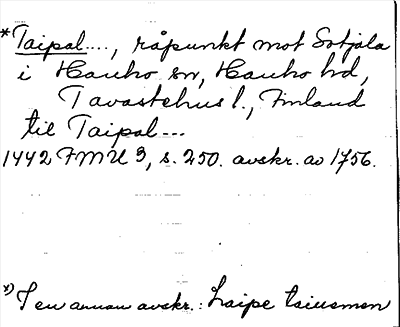 *Taipal...., råpunkt mot Sotjala
i Hauho sn, Hauho hd,
Tavastehus l., Finland
till Taipal---
1442 FMU 3, s. 250. avskr. av 1756.
*) I en annan avskr.: Laipe